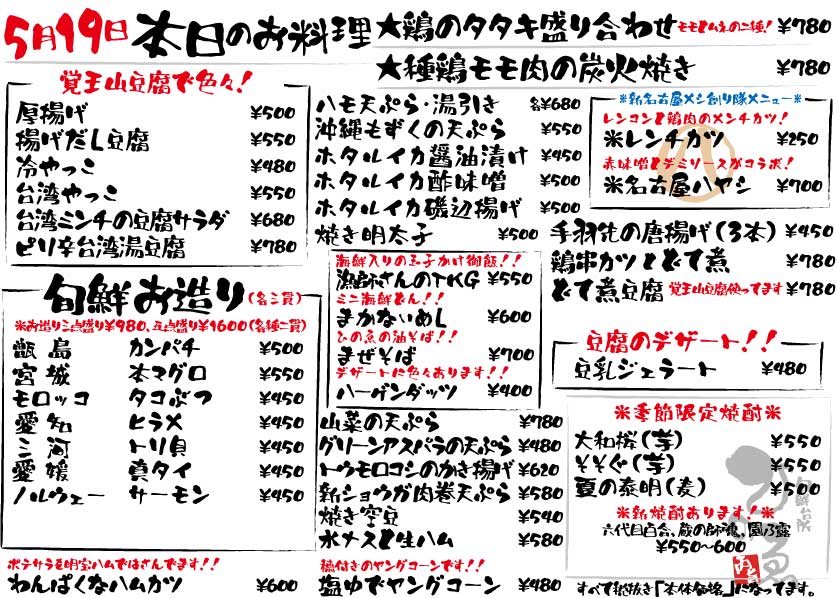 5月19日 本日のお料理
★鶏のタタキ盛り合わせ モモとムネの二種! ¥780
★種鶏モモ肉の炭火焼き ¥780
覚王山豆腐で色々!
厚揚げ ¥500
揚げだし豆腐 ¥550
冷やっこ ¥480
台湾やっこ ¥550
台湾ミンチの豆腐サラダ ¥680
ピリ辛台湾湯豆腐 ¥780
旬鮮お造り(各三貫)
※お造り三点盛り¥980、五点盛り¥1600(各種二貫)
甑島 カンパチ ¥500
宮城 本マグロ ¥550
モロッコ タコぶつ ¥450
愛知 ヒラメ ¥450
三河 トリ貝 ¥450
愛媛 真タイ ¥450
ノルウェー サーモン ¥450
ポテサラを明宝ハムではさんでます!!
わんぱくなハムカツ ¥600
ハモ天ぷら・湯引き 各¥680
沖縄もずくの天ぷら ¥550
ホタルイカ醤油漬け ¥450
ホタルイカ酢味噌 ¥500
ホタルイカ磯辺揚げ ¥500
焼き明太子 ¥500
海鮮入りの玉子かけ御飯!!
漁師さんのTKG ¥550
ミニ海鮮どん!!
まかないめし ¥600
ひの゛ゑの油そば!!
まぜそば ¥700
デザートに色々あります!!
ハーゲンダッツ ¥400
山菜の天ぷら ¥780
グリーンアスパラの天ぷら ¥480
トウモロコシのかき揚げ ¥620
新ショウガ肉巻天ぷら ¥580
焼き空豆 ¥540
水ナスと生ハム ¥580
穂付きのヤングコーンです!!
塩ゆでヤングコーン ¥480
※新名古屋メシ創り隊メニュー※
レンコンと鶏肉のメンチカツ!
※レンチカツ ¥250
赤味噌とデミソースがコラボ!
※名古屋ハヤシ ¥700
手羽先の唐揚げ(3本) ¥450
鶏串カツとどて煮 ¥780
どて煮豆腐 覚王山豆腐使ってます ¥780
豆腐のデザート!!
豆乳ジェラート ¥480
※季節限定焼酎※
大和桜(芋) ¥550
そそぐ(芋) ¥550
夏の泰明(麦) ¥500
※新焼酎あります!※
六代目百合、蔵の師魂、園乃露
¥550~600
すべて税抜き「本体価格」になってます。